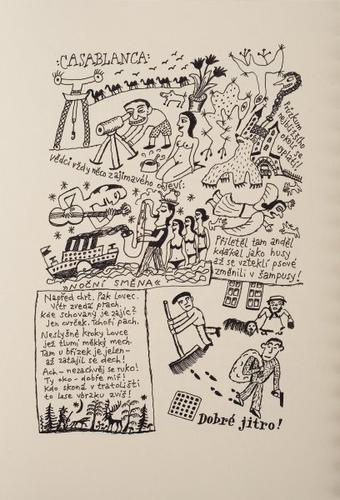 :CASABLANCA:
Průzkum
nejbližšího
okolí
se
vyplatí
Vědci vždy něco zajímavého objeví:
Přiletěl tam anděl
kdákal jako husy
až se vzteklí psové
změnili v šampusy!
„NOČNÍ SMĚNA“
Napřed chrt. Pak Lovec.
Vítr zvedá prach.
Kde schovaný je zajíc?
Jen cvrček. Tchoří pach.
Neslyšné kroky Lovce
jež tlumí měkký mech.
Tam u břízek je jelen-
až zatajil se dech!
Ach- nezachvěj se ruko!
Ty oko - dobře miř!
Kdo skoná v tratolišti
to lase vbrzku zvíš!
Dobré jitro!